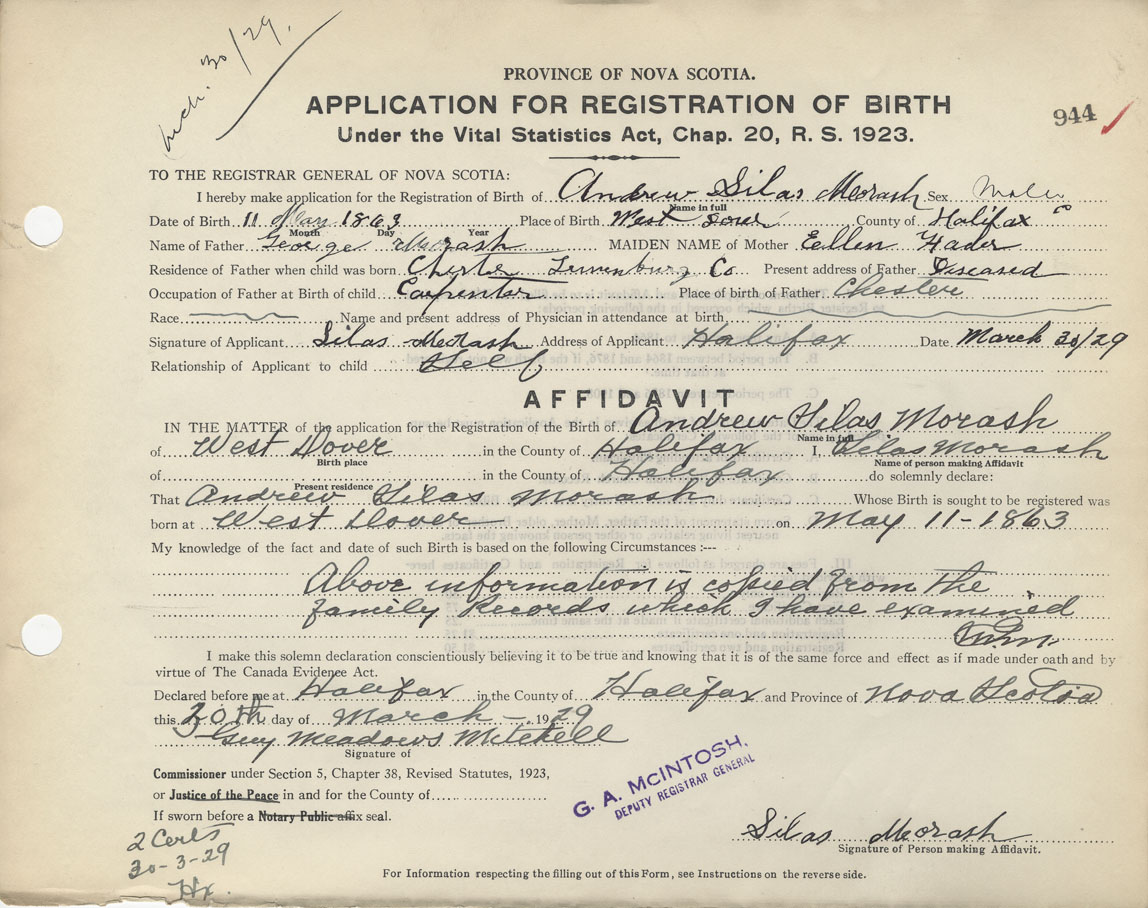 Mch. 30/29.
PROVINCE OF NOVA SCOTIA.
APPLICATION FOR REGISTRATION OF BIRTH
944
Under the Vital Statistics Act, Chap. 20, R. S. 1923.
TO THE REGISTRAR GENERAL OF NOVA SCOTIA:
I hereby make application for the Registration of Birth of Andrew Silas Morash Sex Male
Name in full
Date of Birth 11 May 1863 Place of Birth West Dover County of Halifax Co
Month Day Year
Name of Father George Morash MAIDEN NAME of Mother Eellen Fader
Residence of Father when child was born Chester Lunenburg Co Present address of Father Diseased
Occupation of Father at Birth of child Carpenter Place of birth of Father Chester
Race Name and present address of Physician in attendance at birth
Signature of Applicant Silas Morash Address of Applicant Halifax Date March 30/29
Relationship of Applicant to child Self
AFFIDAVIT
IN THE MATTER of the application for the Registration of the Birth of Andrew Silas Morash
Name in full
of West Dover in the County of Halifax I, Silas Morash
Birth place Name of person making Affidavit
of in the County of Halifax do solemnly declare:
Present residence
That Andrew Silas Morash Whose Birth is sought to be registered was
born at West Dover on May 11-1863
My knowledge of the fact and date of such Birth is based on the following Circumstances :---
Above information is copied from the
family Records which I have examined
GMM.
I make this solemn declaration conscientiously believing it to be true and knowing that it is of the same force and effect as if made under oath and by
virtue of The Canada Evidence Act.
Declared before me at Halifax in the County of Halifax and Province of Nova Scotia
this 30th day of March - 1929
Guy Meadows Mitchell
Signature of
Commissioner under Section 5, Chapter 38, Revised Statutes, 1923,
or Justice of the Peace in and for the County of
If sworn before a Notary Public affix seal.
G. A. McINTOSH,
DEPUTY REGISTRAR GENERAL
2 Certs
30-3-29
Hx.
Silas Morash
Signature of Person making Affidavit.
For Information respecting the filling out of this Form, see Instructions on the reverse side.